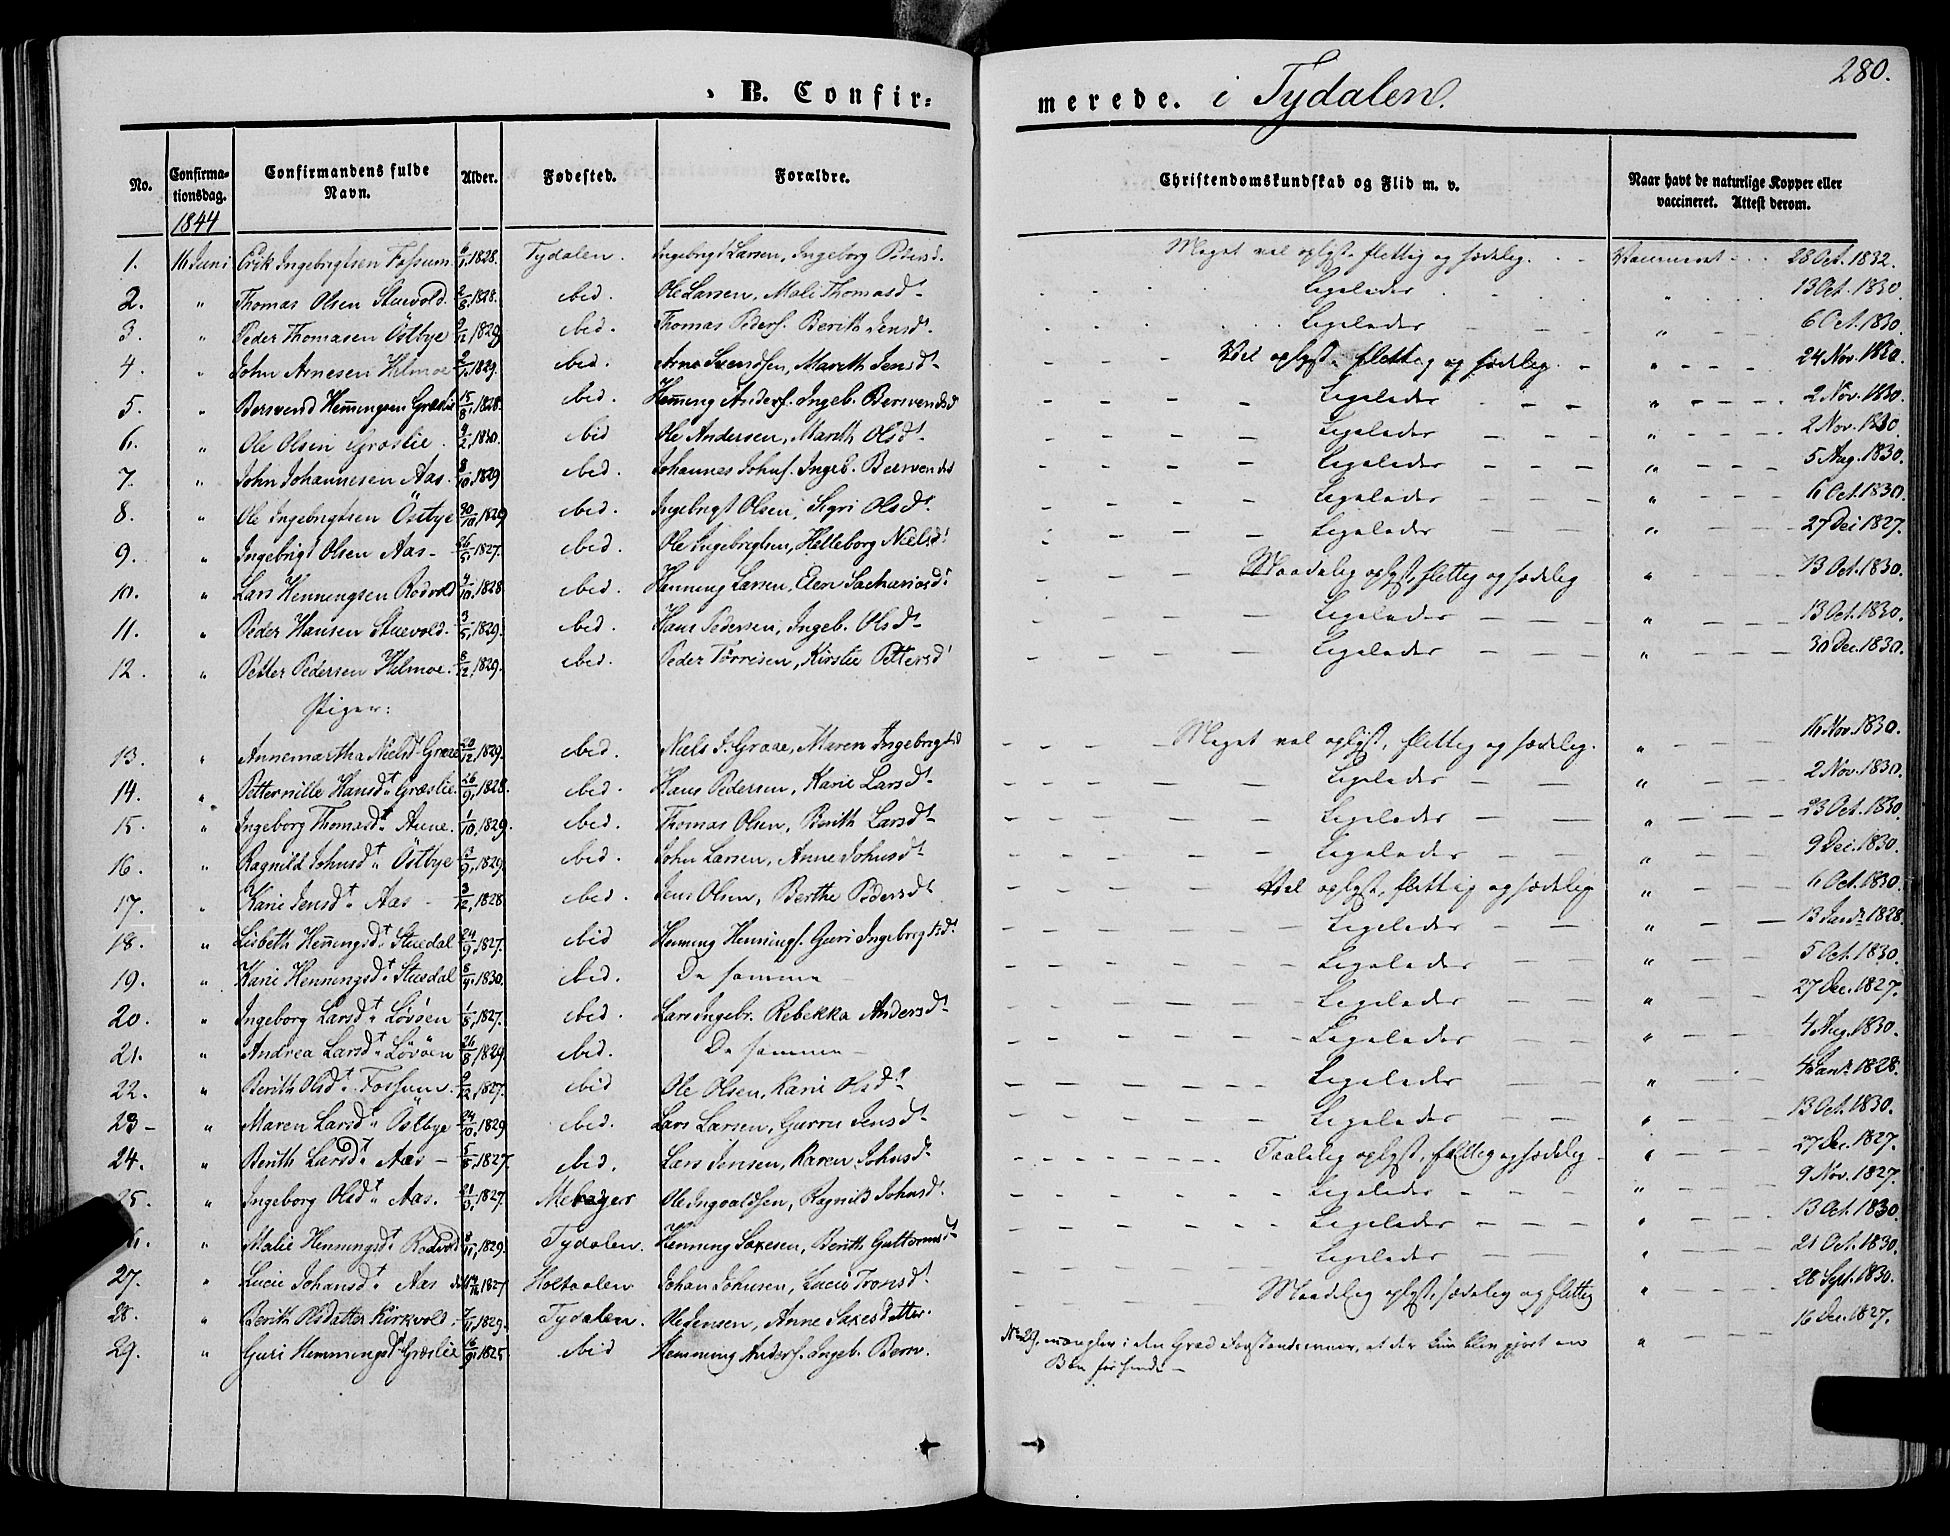 B. Confir=
merede. i Tydalen.
280.
No. Confirmationsdag. Confirmandens fulde Navn. Alder. Fødested. Forældre. Christendomskundskab og Flid m. v. Naar havt de naturlige Kopper eller vaccineret. Attest derom.
1844
1. 16 Juni Erik Ingebrigtsen Fossum 1828. Tydalen. Ingebrigt Larsen, Ingeborg Petersd. Meget vel oplyst, flittig og sædelig. Vaccineret 28 Oct. 1832.
2. " Thomas Olsen Stuevold. 2/8 1828. ibid. Ole Larsen, Mali Thomasdt Ligeledes " 13 Oct. 1830.
3. " Peder Thomasen Östbye 9/12 1829 ibid. Thomas Peders. Berith Jensdt. Ligeledes " 6 Oct. 1830.
4. " John Arnesen Hilmoe 1829. ibid. Arne Svendsen, Marith Jensdt Vel oplyst, flittig og sædelig. " 24 Nov. 1830.
5. " Bersvend Hemingsen Græslie 15/8 1828. ibid. Heming Anders. Ingeb. Bersvendsd Ligeledes " 2 Nov. 1830.
6. " Ole Olsen Græslie. 9/2 1830. ibid Ole Andersen, Marith Olsdt. Ligeledes " 2 Nov. 1830.
7. " John Johannesen Aas. 8/10 1829 ibid. Johannes Johns. Ingeb. Bersvendsd Ligeledes " 5 Aug. 1830.
8. " Ole Ingebrigtsen Östbye 30/10 1829 ibid. Ingebrigt Olsen, Sigri Olsdt. Ligeledes " 6 Oct. 1830.
9. " Ingebrigt Olsen Aas 26/5 1827. ibid. Ole Ingebrigtsen, Helleborg Nielsdt Ligeledes " 27 Dec 1827.
10. " Lars Henningsen Rodvold 9/10 1828 ibid. Henning Larsen, Elen Sachariasdt Maadelig oplyst, flittig og sædelig " 13 Oct. 1830.
11. " Peder Hansen Stuevold. 3/5 1829. ibid. Hans Pedersen, Ingeb. Olsdt Ligeledes " 13 Oct. 1830.
12. " Petter Pedersen Hilmoe. 8/12 1829. ibid. Peder Törresen, Kirstie Pettersdt Ligeledes " 30 Dec. 1830.
Piger:
13. " Annemartha Nielsdt Græse 20/12 1829. ibid. Niels J. Græse, Maren Ingebrigtsd Meget vel oplyst, flittig og sædelig. " 16 Nov. 1830.
14. " Petternille Hansdt Græslie 26/9 1828. ibid. Hans Pedersen, Karie Larsdt Ligeledes " 2 Nov. 1830.
15. " Ingeborg Thomasdt Aune. 1/10 1829. ibid. Thomas Olsen, Berith Larsdt Ligeledes " 23 Oct. 1830
16. " Ragnild Johnsdt Östbye 1829. ibid. John Larsen, Anne Johnsdt Ligeledes " 9 Dec. 1830.
17. " Karie Jensdt Aas 3/12 1828 ibid. Jens Olsen, Berthe Pedersdt Vel oplyst, flittig og sædelig " 6 Oct. 1830.
18. " Lisbeth Heningsdt Stuedal 24/9 1827. ibid Henning Hennings. Guri Ingebrigtsdt. Ligeledes " 13 Janr. 1828.
19. " Karie Henningsdt Stuedal 8/4 1830. ibid. De samme Ligeledes " 5 Oct. 1830.
20. " Ingeborg Larsdt Løvöen 1/8 1827. ibid. Lars Ingebr. Rebekka Andersdt Ligeledes " 27 Dec. 1827.
21. " Andrea Larsdt Løvöen 26/8 1829. ibid. De samme Ligeledes " 4 Aug. 1830.
22. " Berith Olsdt Fossum. 9/12 1827. ibid Ole Olsen, Kari Olsdt Ligeledes " 4 Janr. 1828.
23 " Maren Larsdt Östbye 24/10 1829 ibid. Lars Larsen, Gurru Jensdt Ligeledes " 13 Oct. 1830.
24. " Berith Larsdt Aas 5/8 1827. ibid. Lars Jensen, Karen Johnsdt Taalelig oplyst, flittig og sædelig " 27 Dec. 1827.
25. " Ingeborg Olsdt Aas. 21/3 1827. Merager Ole Ingvaldsen, Ragnild Johnsdt. Ligeledes " 9 Nov. 1827.
26. " Malie Henningsdt Rodvold 8/11 1829. Tydalen. Henning Saxesen, Berith Guttormsdt Ligeledes " 13 Oct. 1830.
27. " Lucie Johansdt Aas 1827 Holtaalen Johan Johnsen, Lucie Tronsdt. Ligeledes " 21 Oct. 1830.
28. " Berith Olsdatter Kirkvold 1829. Tydalen. Ole Jensen, Anne Saxesdatter. Maadelig oplyst, sædelig og flittig " 28 Sept. 1830.
29. " Guri Hemmingsdt Græslie 16/9 1825 ibid Hemming Anders. Ingeb. Bersv. No 29, mangler i den Grad Forstandsevner, at der kun blev gjort en " 16 Dec. 1827.
Bön for hende